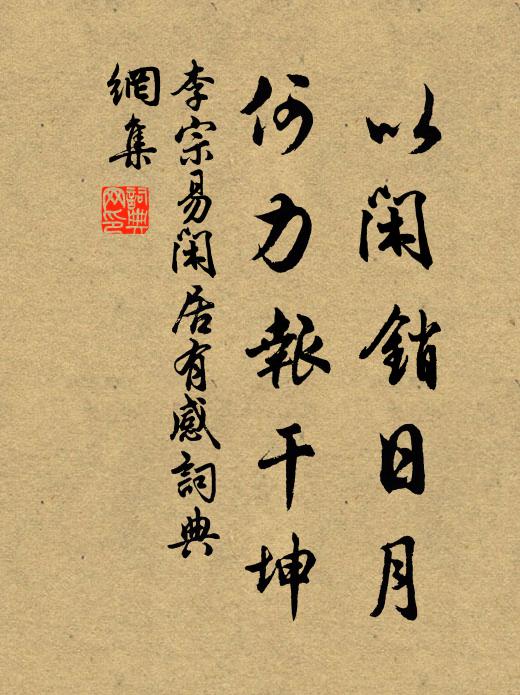 以閑銷日月
何力報干坤
李宗易閑居有感詞典
網集
詞典網印